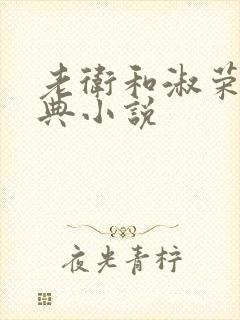 老卫和淑荣
典小说
夜光青柠